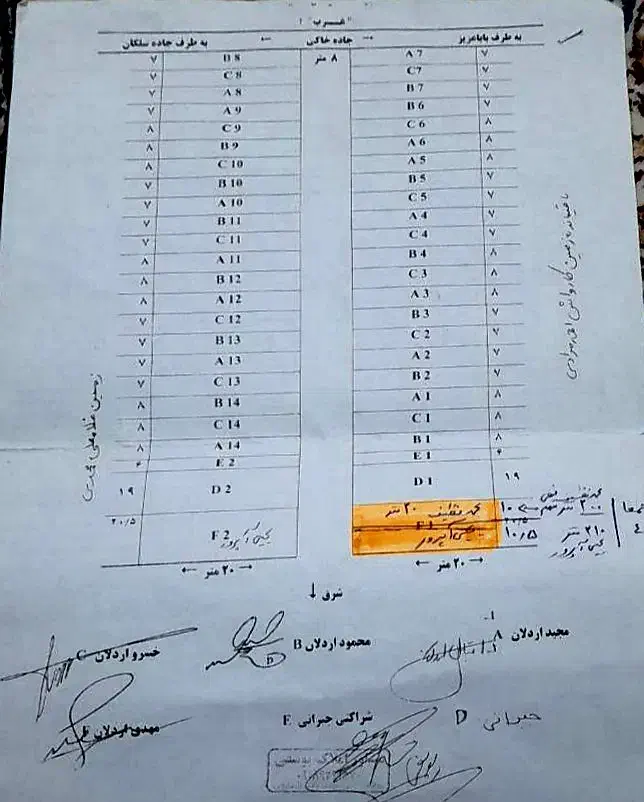 غرب
به طرف جاده سلکان ← جاده خاکی → به طرف باباعزیز
۷ B 8 ۸ متر A 7 ۷
۷ C 8 C7 ۷
۷ A 8 B 7 ۷
۷ A 9 B 6 ۷
۸ C 9 C 6 ۸
۸ B 9 A 6 ۸
۸ C 10 A 5 ۸
۷ B 10 B 5 ۷
۷ A 10 C 5 ۷
۷ B 11 A 4 ۷
۷ C 11 C 4 ۷
۸ A 11 B 4 ۸
۸ B 12 C 3 ۸
۸ A 12 A 3 ۸
۷ C 12 B 3 ۷
۷ B 13 C 2 ۷
۷ A 13 A 2 ۷
۷ C 13 B 2 ۷
۸ B 14 A 1 ۸
۸ C 14 C 1 ۸
۸ A 14 B 1 ۸
۴ E 2 E 1 ۴
۱۹ D 2 D 1 ۱۹
۲۰/۵ F 2 محمد نظیف ۲۰ متر ۱۰
F 1 ۱۰/۵
۲۰۰ متر
۲۱۰ متر
← ۲۰ متر → ← ۲۰ متر →
شرق ↓
مجید اردلان A محمود اردلان B خسرو اردلان C
D شراکتی جبرانی E مهدی اردلان F